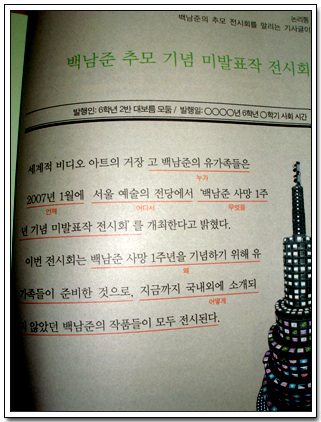 논리통
백남준의 추모 전시회를 알리는 기사글이
백남준 추모 기념 미발표작 전시회
발행인: 6학년 2반 대보름 모둠 / 발행일: ○○○○년 6학년 ○학기 사회 시간
세계적 비디오 아트의 거장 고 백남준의 유가족들은
누가
2007년 1월에 서울 예술의 전당에서 '백남준 사망 1주
언제 어디서 무엇을
년 기념 미발표작 전시회'를 개최한다고 밝혔다.
이번 전시회는 백남준 사망 1주년을 기념하기 위해 유
왜
가족들이 준비한 것으로, 지금까지 국내외에 소개되
어떻게
지 않았던 백남준의 작품들이 모두 전시된다.